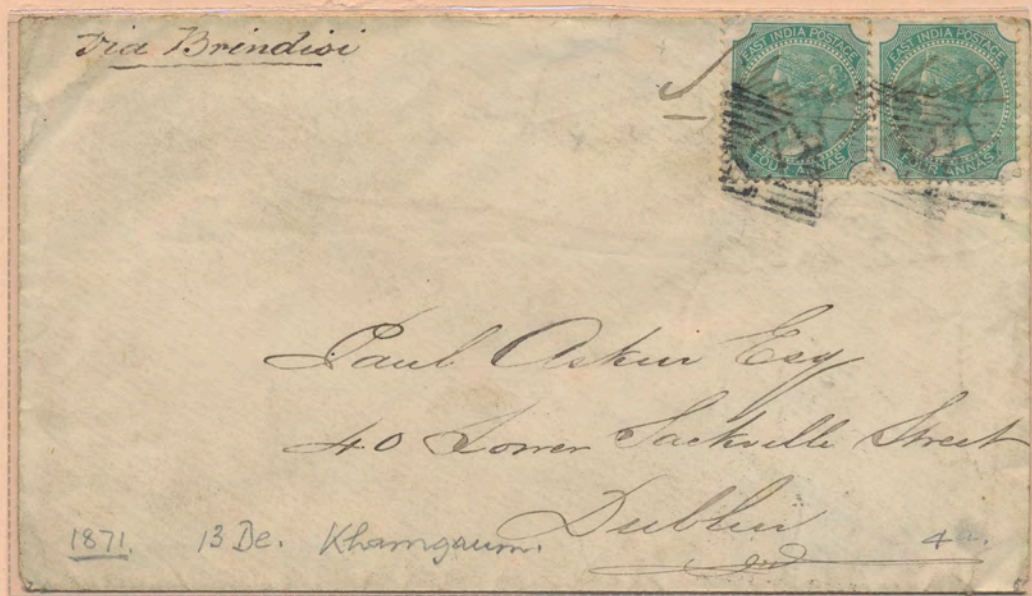 Via Brindisi
EAST INDIA POSTAGE EAST INDIA POSTAGE
FOUR ANNAS FOUR ANNAS
Paul Askin Esq
40 Lower Sackville Street
Dublin
1871. 13 De. Khamgaum.